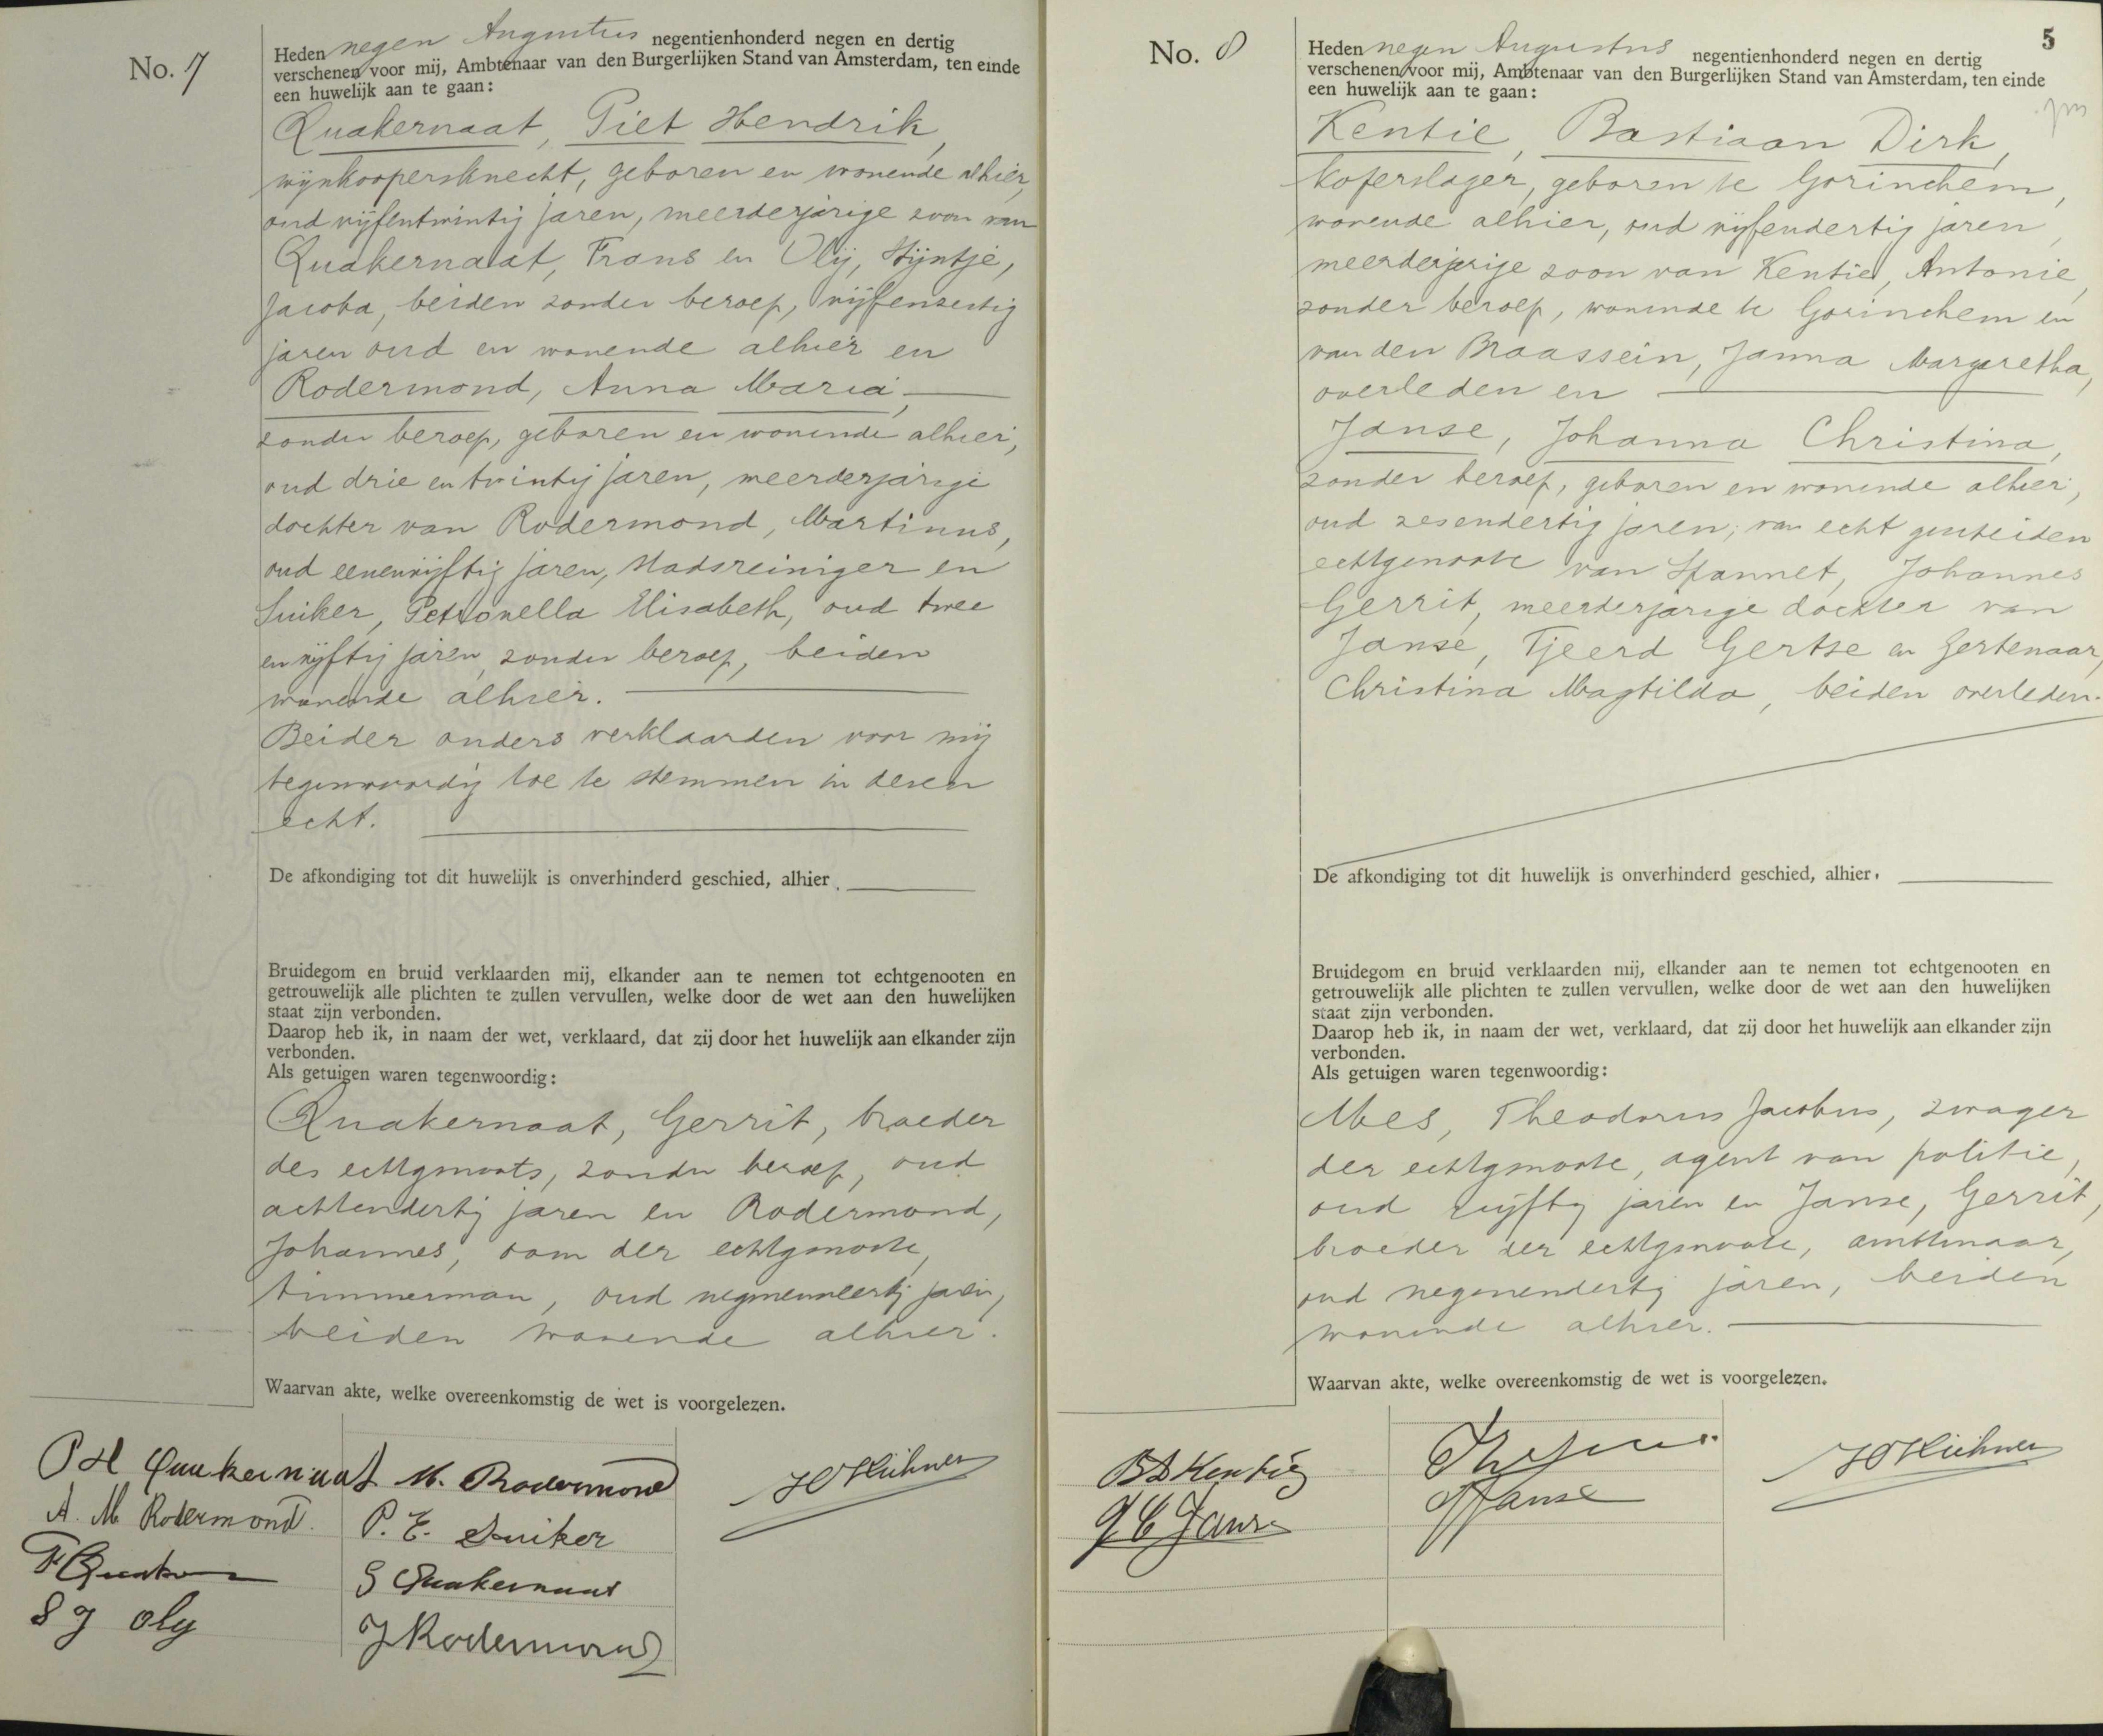 No. 7
Heden negen Augustus negentienhonderd negen en dertig
verschenen voor mij, Ambtenaar van den Burgerlijken Stand van Amsterdam, ten einde
een huwelijk aan te gaan:
Quakernaat, Piet Hendrik,
wijnkoopersknecht, geboren en wonende alhier,
oud vijfentwintig jaren, meerderjarige zoon van
Quakernaat, Frans en Olij, Stijntje,
Jacoba, beiden zonder beroep, vijfenzestig
jaren oud en wonende alhier en
Rodermond, Anna Maria,
zonder beroep, geboren en wonende alhier,
oud drie en twintig jaren, meerderjarige
dochter van Rodermond, Martinus,
oud eenenvijftig jaren, stadsreiniger en
Suiker, Petronella Elisabeth, oud twee
en vijftig jaren, zonder beroep, beiden
wonende alhier.
Beider ouders verklaarden voor mij
tegenwoordig toe te stemmen in dezen
echt.
De afkondiging tot dit huwelijk is onverhinderd geschied, alhier.
Bruidegom en bruid verklaarden mij, elkander aan te nemen tot echtgenooten en
getrouwelijk alle plichten te zullen vervullen, welke door de wet aan den huwelijken
staat zijn verbonden.
Daarop heb ik, in naam der wet, verklaard, dat zij door het huwelijk aan elkander zijn
verbonden.
Als getuigen waren tegenwoordig:
Quakernaat, Gerrit, broeder
des echtgenoots, zonder beroep, oud
achtendertig jaren en Rodermond,
Johannes, oom der echtgenoote,
timmerman, oud negenenveertig jaren,
beiden wonende alhier.
Waarvan akte, welke overeenkomstig de wet is voorgelezen.
P H Quakernaat M. Rodermond
A. M Rodermond. P. E. Suiker
F Quaker G Quakernaat
S J Oly J Rodermond
No. 8
5
Heden negen Augustus negentienhonderd negen en dertig
verschenen voor mij, Ambtenaar van den Burgerlijken Stand van Amsterdam, ten einde
een huwelijk aan te gaan:
Kentie, Bastiaan Dirk,
koperslager, geboren te Gorinchem,
wonende alhier, oud vijfendertig jaren,
meerderjarige zoon van Kentie, Antonie,
zonder beroep, wonende te Gorinchem en
van den Braassein, Janna Margaretha,
overleden en
Janse, Johanna Christina,
zonder beroep, geboren en wonende alhier,
oud zesendertig jaren, van echt gescheiden
echtgenoote van Spannet, Johannes
Gerrit, meerderjarige dochter van
Janse, Tjeerd Gertse en Gertenaar,
Christina Magtilda, beiden overleden.
De afkondiging tot dit huwelijk is onverhinderd geschied, alhier.
Bruidegom en bruid verklaarden mij, elkander aan te nemen tot echtgenooten en
getrouwelijk alle plichten te zullen vervullen, welke door de wet aan den huwelijken
staat zijn verbonden.
Daarop heb ik, in naam der wet, verklaard, dat zij door het huwelijk aan elkander zijn
verbonden.
Als getuigen waren tegenwoordig:
Mes, Theodorus Jacobus, zwager
der echtgenoote, agent van politie,
oud vijftig jaren en Janse, Gerrit,
broeder der echtgenoote, ambtenaar,
oud negenendertig jaren, beiden
wonende alhier.
Waarvan akte, welke overeenkomstig de wet is voorgelezen.
B D Kentie
J C Janse Janse